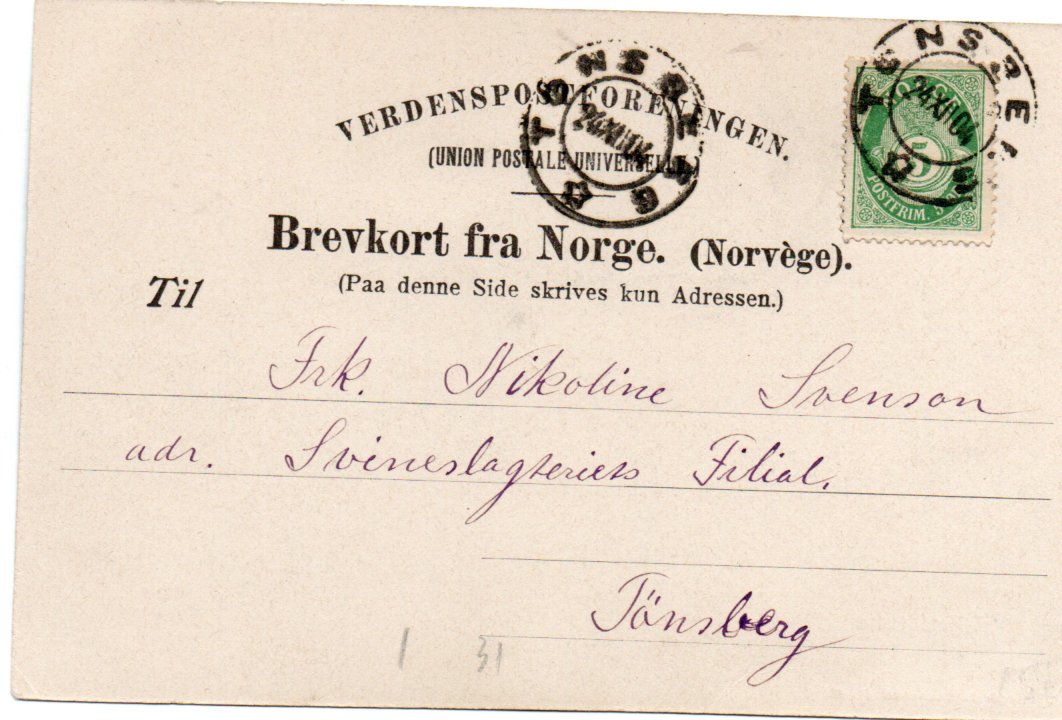 VERDENSPOSTFORENINGEN.
(UNION POSTALE UNIVERSELLE)
TØNSBERG
24 XII 04
TØNSBERG
24 XII 04
5
POSTFRIM.
Brevkort fra Norge. (Norvège).
(Paa denne Side skrives kun Adressen.)
Til
Frk. Nikoline Svenson
adr. Svineslagteriets Filial.
Tönsberg
1 31